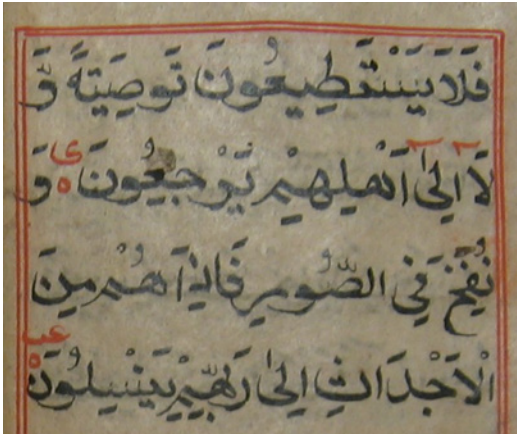 فَلَا يَسْتَطِيعُونَ تَوصِيَةً وَّ
لَا اِلىٰ اَهْلِهِمْ يَرْجِعُونَ ى ہ وَ
نُفِخَ فِي الصُّورِ فَاِذَا هُمْ مِنَ
الْاَجْدَاثِ اِلىٰ رَبِّهِمْ يَنْسِلُوْنَ